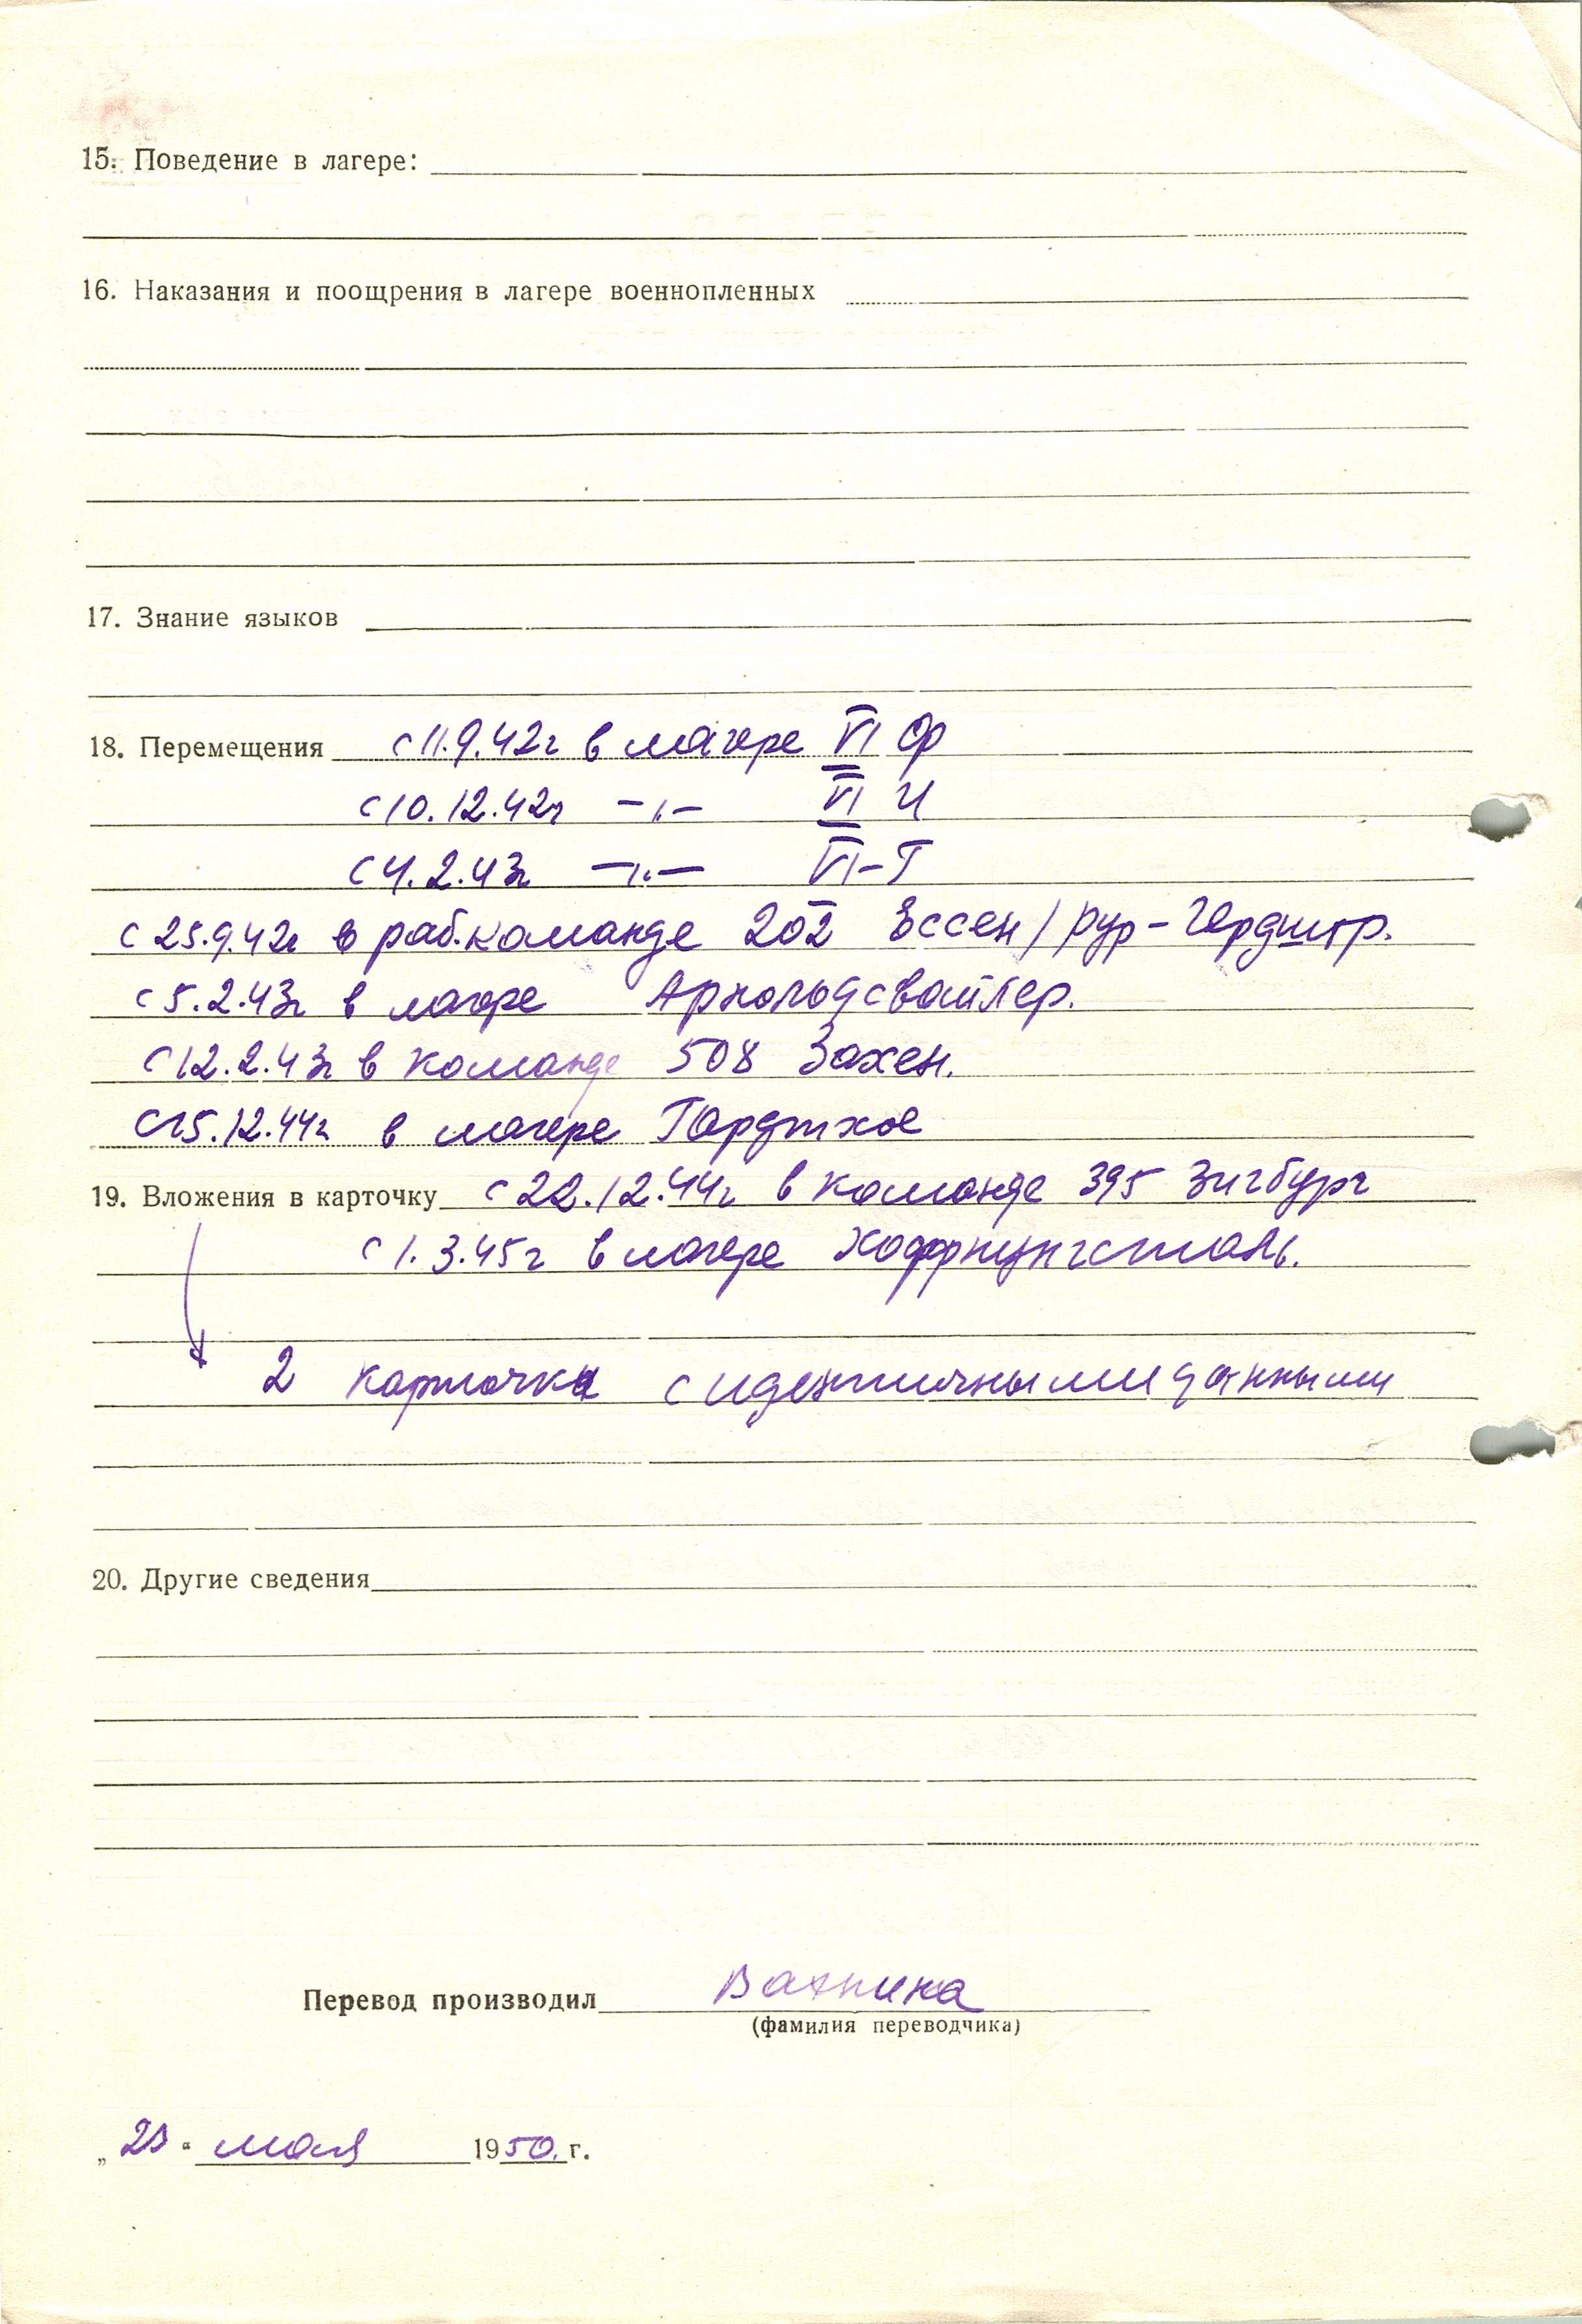 15. Поведение в лагере:
16. Наказания и поощрения в лагере военнопленных
17. Знание языков
18. Перемещения с 11.9.42г в лагере VI Ф
с 10.12.42г —„— VI
с 4.2.43г —„— VI-Г
с 25.9.42г в раб.команде 202 Эссен/Рур-
с 5.2.43г в лагере Арнольдсвайлер.
с 12.2.43г в команде 508 Захен.
с 15.12.44г в лагере
19. Вложения в карточку с 22.12.44г в команде 395 Зигбург
с 1.3.45г в лагере Хоффнунгсталь.
2 карточки с идентичными данными
20. Другие сведения
Перевод производил
(фамилия переводчика)
мая 1950.г.